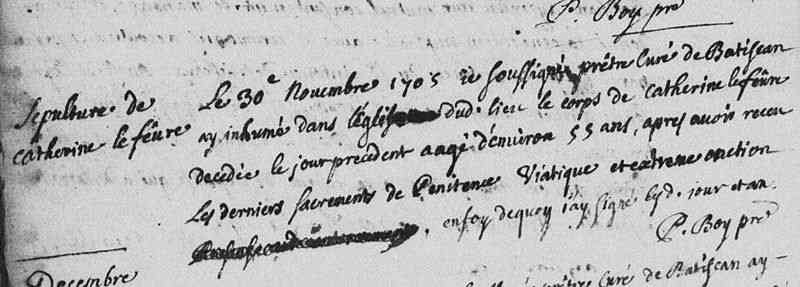 P. Boy pre
Sepulture de
Catherine lefévre
Le 30e Novembre 1705 ie soussigné prêtre Curé de Batiscan
ay inhumé dans l'église dud. lieu le corps de Catherine lefévre
decedée le jour precedent aagé d'environ 55 ans, apres avoir receu
Les derniers sacrements de Penitence Viatique et extreme onction
. en foy dequoy i'ay signé lesd. jour et an.
P. Boy pre
Decembre
prêtre Curé de Batiscan ay-